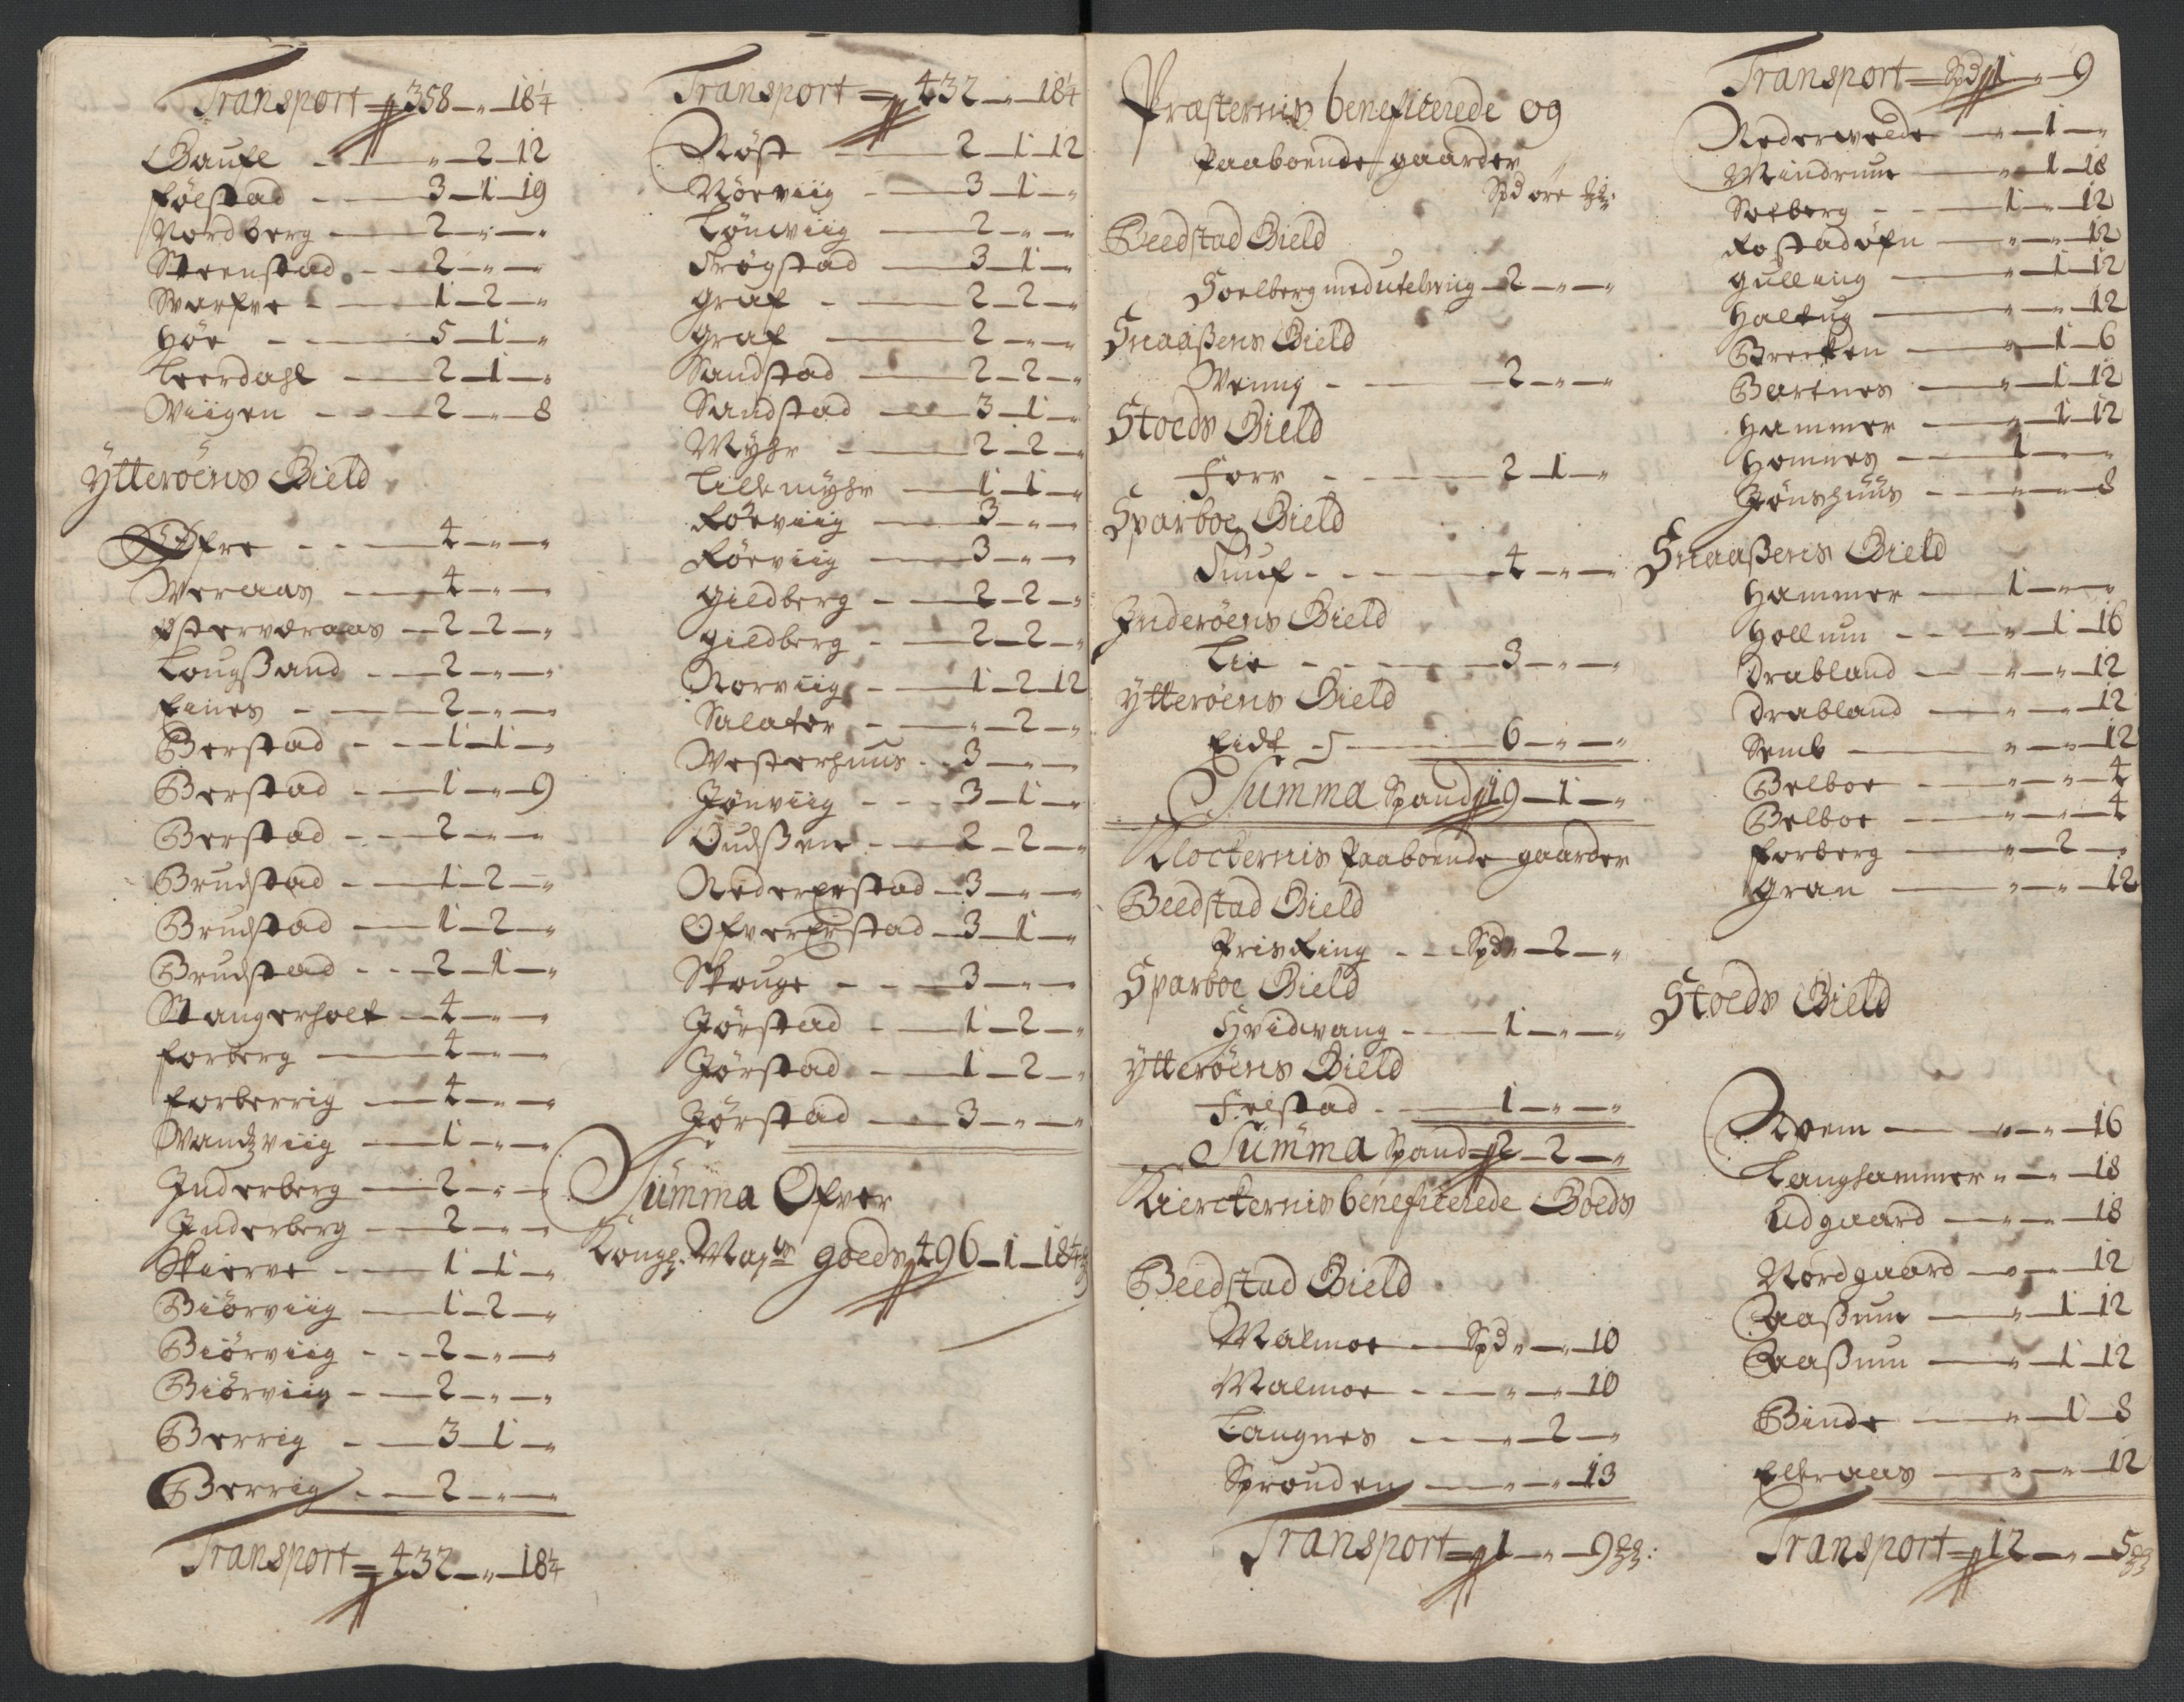 Transport 358 — " — 18¼
Gaufl — " — 2 — 12
Følstad — 3 — 1 — 19
Nordberg — 2 — " — "
Steenstad — 2 — " — "
Svarfve — 1 — 2 — "
Høe — 5 — 1 — "
Leerdahl — 2 — 1 — "
Wiigen — 2 — " — 8
Ytterøens Gield
Øfre — 4 — " — "
Weraas — 4 — " — "
Østerværaas — 2 — 2 — "
Lougsand — 2 — " — "
Eines — 2 — " — "
Berstad — 1 — 1 — "
Berstad — 1 — " — 9
Berstad — 2 — " — "
Brudstad — 1 — 2 — "
Brudstad — 1 — 2 — "
Brudstad — 2 — 1 — "
Stangerholt — 4 — " — "
Forberg — 4 — " — "
Forberrig — 4 — " — "
Wandzviig — 1 — " — "
Inderberg — 2 — " — "
Inderberg — 2 — " — "
Skierve — 1 — 1 — "
Biørviig — 1 — 2 — "
Biørviig — 2 — " — "
Biørviig — 2 — " — "
Berrig — 3 — 1 — "
Berrig — 2 — " — "
Transport 432 — " — 18¼
Transport 432 — " — 18¼
Røst — 2 — 1 — 12
Nørviig — 3 — 1 — "
Lønwiig — 2 — " — "
Trøgstad — 3 — 1 — "
Graf — 2 — 2 — "
Graf — 2 — " — "
Sandstad — 2 — 2 — "
Sandstad — 3 — 1 — "
Myhr — 2 — 2 — "
Lillemyhr — 1 — 1 — "
Rørviig — 3 — " — "
Rørviig — 3 — " — "
Gieldberg — 2 — 2 — "
Gieldberg — 2 — 2 — "
Norviig — 1 — 2 — 12
Salater — " — 2 — "
Westerhuus — 3 — " — "
Jønviig — 3 — 1 — "
Oudssen — 2 — 2 — "
Nederestad — 3 — " — "
Ofver Erstad — 3 — 1 — "
Skouge — 3 — " — "
Jørstad — 1 — 2 — "
Jørstad — 1 — 2 — "
Jørstad — 3 — " — "
Summa Ofver
Kongl. Mayts goeds 496 — 1 — 18¼
Præsternis beneficerede og
Paaboende gaarder
Spd øre
Beedstad Gield
Soelberg med utelwiig — 2 — " — "
Snaaßens Gield
Wennig — 2 — " — "
Stoeds Gield
Forr — 2 — 1 — "
Sparboe Gield
Tuuf — 4 — " — "
Inderøens Gield
Lie — 3 — " — "
Ytterøens Gield
Eidt — 6 — " — "
Summa Spand 19 — 1 — "
Klockernis Paaboende gaarder
Beedstad Gield
Prisling — Spd " — 2 — "
Sparboe Gield
Hvidvang — 1 — " — "
Ytterøens Gield
Felstad — 1 — " — "
Summa Spand 2 — 2 — "
Kierckernis beneficerede Goeds
Beedstad Gield
Malmoe — Spd " — " — 10
Malmoe — " — " — 10
Langnes — " — 2 — "
Sprouden — " — " — 13
Transport 1 — " — 9
Transport Spd 1 — " — 9
Nederwelde — " — 1 — "
Mindrum — " — 1 — 18
Solberg — 1 — " — 12
Fostadøfn — " — " — 12
Gulling — " — 1 — 12
Haltug — " — " — 12
Brecken — " — 1 — 6
Bartnes — " — 1 — 12
Hammer — " — 1 — 12
Homnes — 1 — " — "
Jønshuus — " — " — 8
Snaaßens Gield
Hammer — 1 — " — "
Hollum — " — 1 — 16
Drabland — " — " — 12
Drabland — " — " — 12
Semb — " — " — 12
Belboe — " — " — 4
Belboe — " — " — 4
Forberg — " — 2 — "
Gran — " — " — 12
Stoeds Gield
Qvem — " — " — 16
Langhammer " — " — 18
Udgaard — " — " — 18
Nordgaard — " — " — 12
Aaßum — " — 1 — 12
Aaßum — " — 1 — 12
Binde — " — 1 — 8
Elleraas — " — " — 12
Transport 12 — " — 5